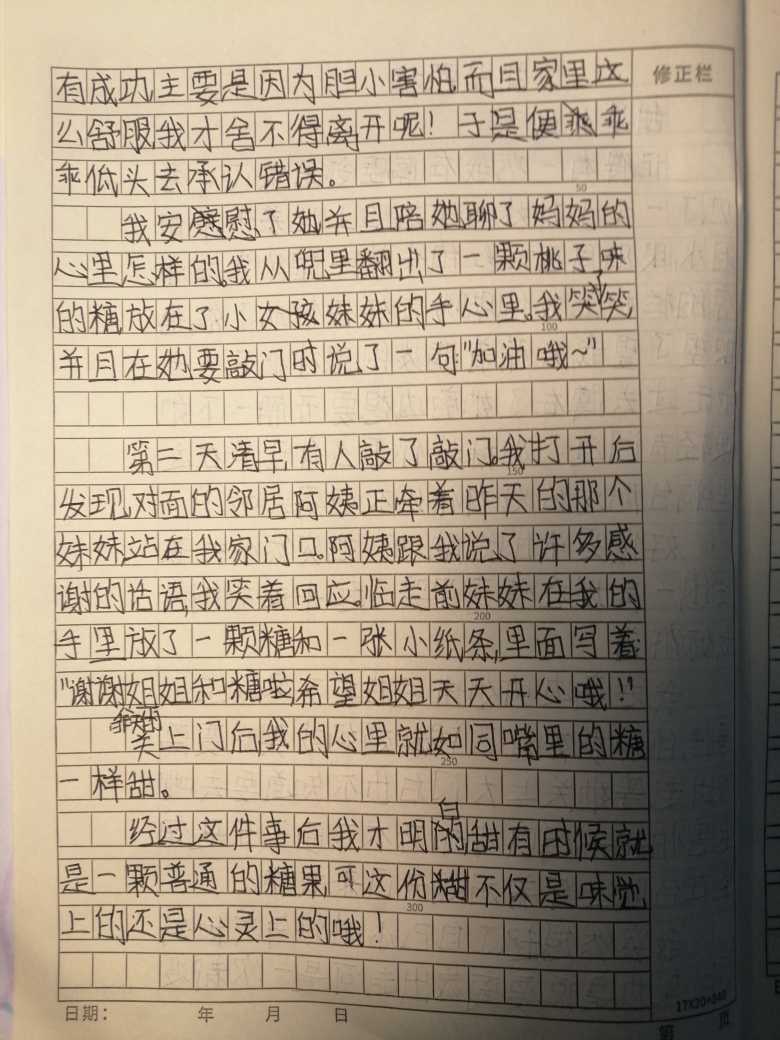 修正栏
有成功,主要是因为胆小害怕,而且家里这
么舒服我才舍不得离开呢!于是便乖乖
乖低头去承认错误。
50
我安慰了她并且陪她聊了妈妈的
心里怎样的。我从兜里翻出了一颗桃子味
的糖,放在了小女孩妹妹的手心里。我笑了笑
100
并且在她要敲门时说了一句"加油哦~"
第二天清早,有人敲了敲门。我打开后
150
发现,对面的邻居阿姨正牵着昨天的那个
妹妹,站在我家门口。阿姨跟我说了许多感
谢的话语,我笑着回应。临走前妹妹在我的
200
手里放了一颗糖和一张小纸条,里面写着
"谢谢姐姐和糖啦,希望姐姐天天开心哦!"
关上门后,我的心里就如同嘴里的糖
250
一样甜。
经过这件事后我才明白的甜有时候就
是一颗普通的糖果,可这份甜不仅是味觉
300
上的还是心灵上的哦!
17X20=340
日期: 年 月 日
第 页